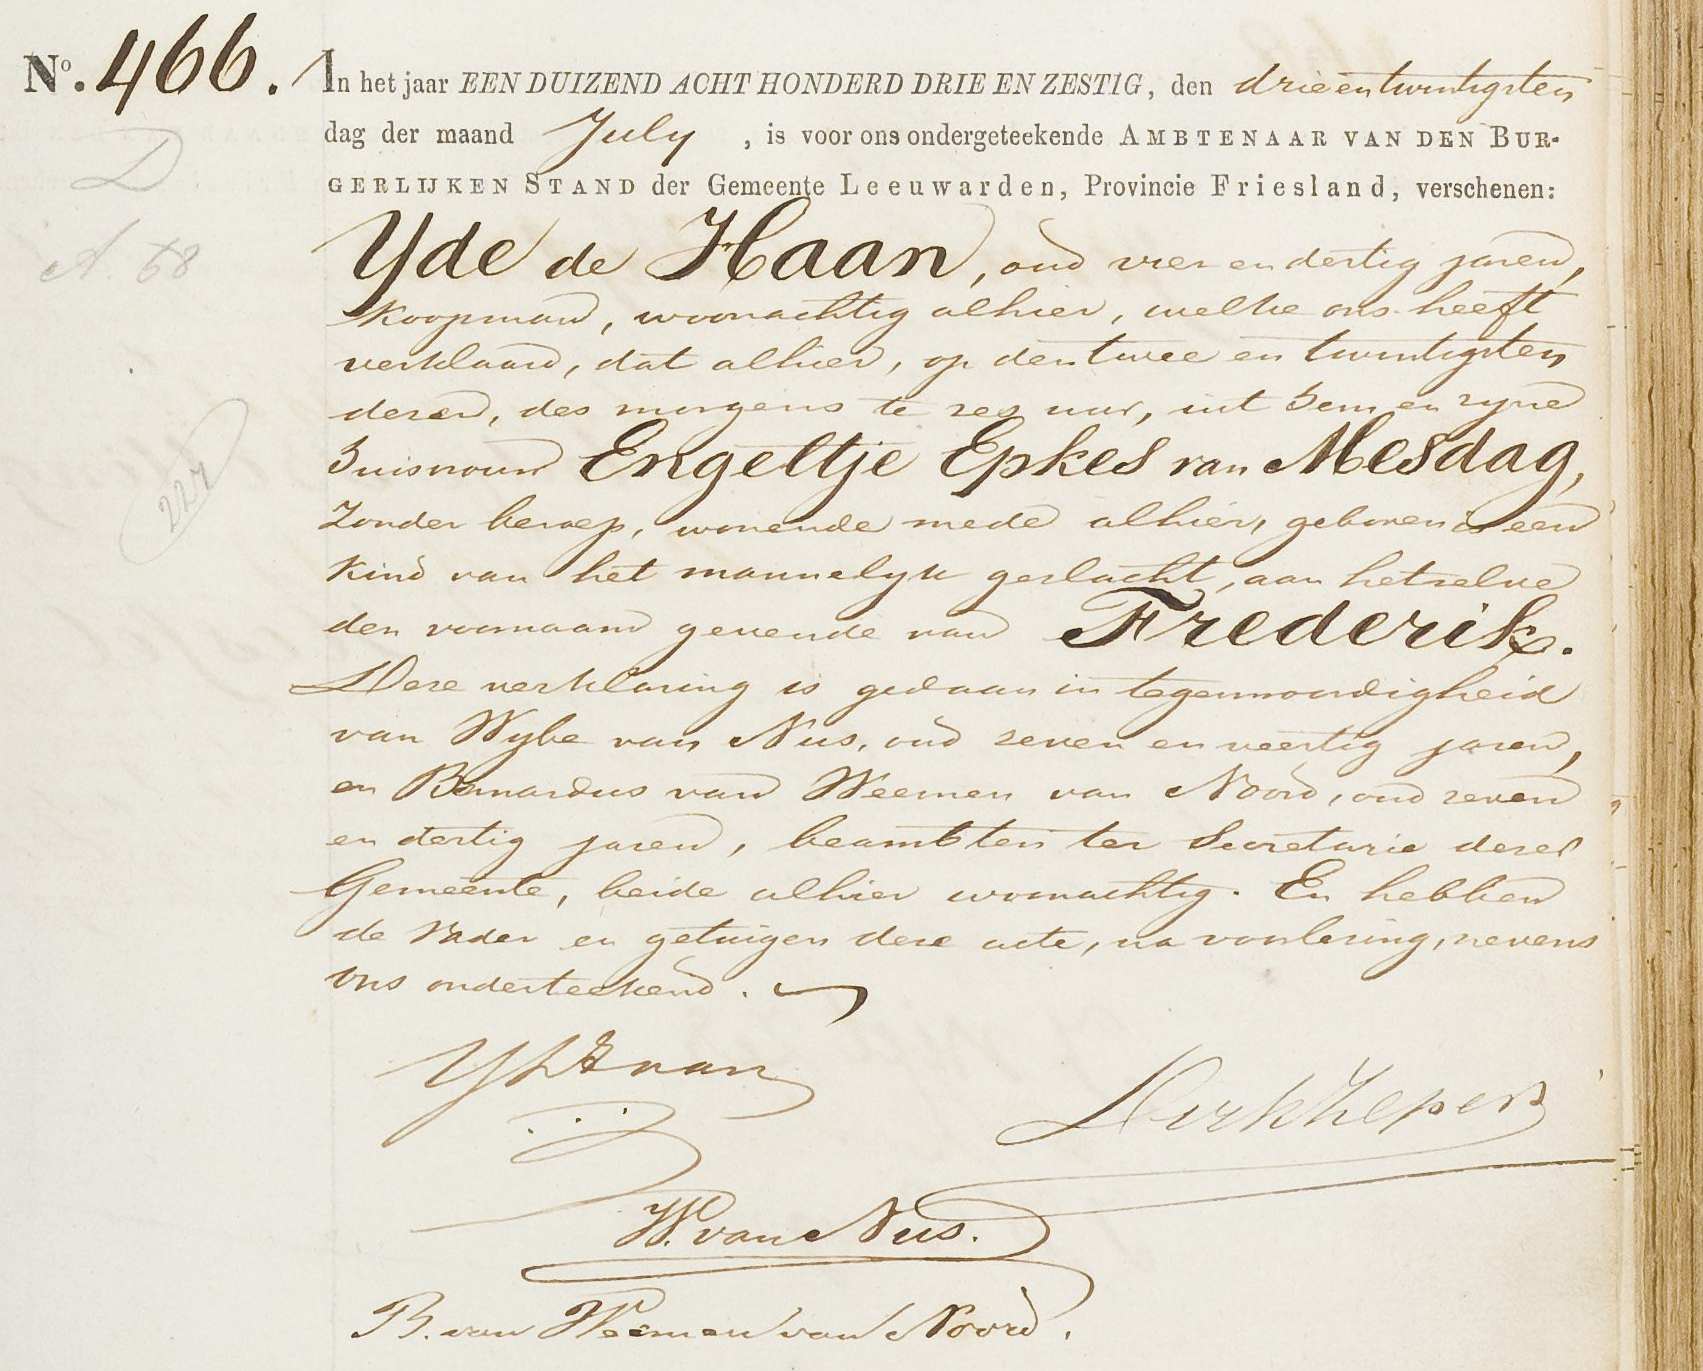 No. 466.
In het jaar EEN DUIZEND ACHT HONDERD DRIE EN ZESTIG, den drieentwintigsten
dag der maand July , is voor ons ondergeteekende AMBTENAAR VAN DEN BUR-
GERLIJKEN STAND der Gemeente Leeuwarden, Provincie Friesland, verschenen:
D
A. 68
Yde de Haan, oud vier en dertig jaren,
koopman, woonachtig alhier, welke ons heeft
verklaard, dat alhier, op den twee en twintigsten
dezer, des morgens te zes uur, uit hem en zyne
huisvrouw Engeltje Epkes van Mesdag,
227
zonder beroep, wonende mede alhier, geboren is een
kind van het mannelyk geslacht, aan hetzelve
den voornaam gevende van Frederik.
Deze verklaring is gedaan in tegenwoordigheid
van Wybe van Nus, oud zeven en veertig jaren,
en Bernardus van Weemen van Noord, oud zeven
en dertig jaren, beambten ter Secretarie dezer
Gemeente, beide alhier woonachtig. En hebben
de vader en getuigen deze acte, na voorlezing, nevens
ons onderteekend.
Y d Haan
Dirk Zepers
W. van Nus.
B. van Weemen van Noord.